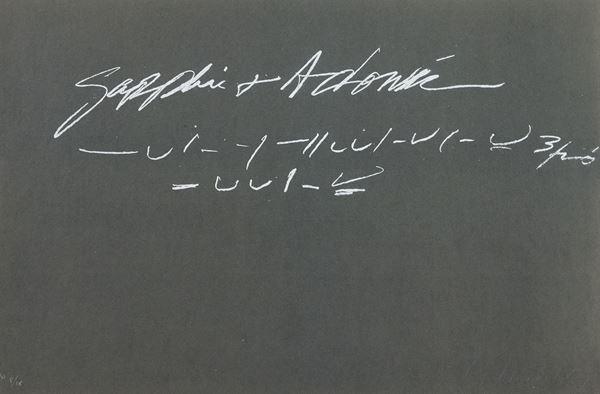 Sapphic + Adonic
— ∪ | – – | — || ∪ ∪ | – ∪ | – ∪ 3 fois
– ∪ ∪ | – ∪